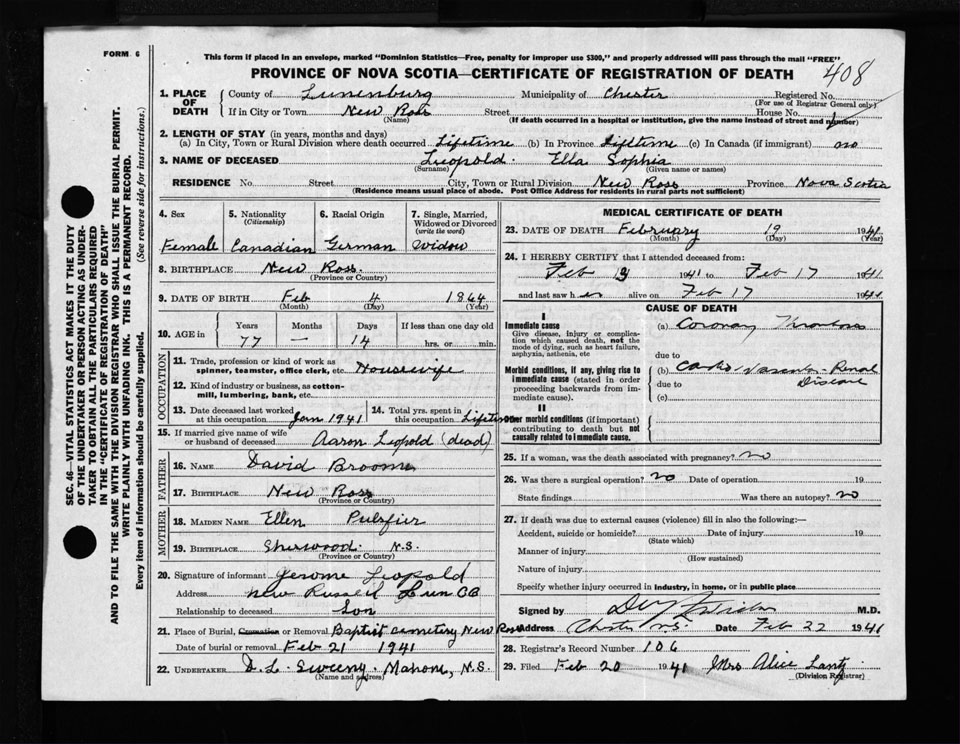 FORM 6
This form if placed in an envelope, marked "Dominion Statistics—Free, penalty for improper use $300," and properly addressed will pass through the mail "FREE"
PROVINCE OF NOVA SCOTIA—CERTIFICATE OF REGISTRATION OF DEATH
408
1. PLACE OF DEATH
County of Lunenburg Municipality of Chester Registered No.
(For use of Registrar General only)
If in City or Town New Ross Street House No.
(Name) (If death occurred in a hospital or institution, give the name instead of street and number)
2. LENGTH OF STAY (in years, months and days)
(a) In City, Town or Rural Division where death occurred Lifetime (b) In Province Lifetime (c) In Canada (if immigrant) no
3. NAME OF DECEASED Leopold. Ella Sophia
(Surname) (Given name or names)
RESIDENCE No. Street City, Town or Rural Division New Ross Province Nova Scotia
(Residence means usual place of abode. Post Office Address for Residents in rural parts not sufficient)
4. Sex 5. Nationality 6. Racial Origin 7. Single, Married, Widowed or Divorced
(Citizenship) (write the word)
Female Canadian German widow
8. BIRTHPLACE New Ross.
(Province or Country)
9. DATE OF BIRTH Feb 4 1864
(Month) (Day) (Year)
10. AGE in Years Months Days If less than one day old
77 — 14 hrs. or min.
OCCUPATION
11. Trade, profession or kind of work as spinner, teamster, office clerk, etc. Housewife
12. Kind of industry or business, as cotton-mill, lumbering, bank, etc.
13. Date deceased last worked at this occupation Jan 1941 14. Total yrs. spent in this occupation Lifetime
15. If married give name of wife or husband of deceased Aaron Leopold (dead)
FATHER
16. NAME David Broome
17. BIRTHPLACE New Ross
(Province or Country)
MOTHER
18. MAIDEN NAME Ellen Pulsfier
19. BIRTHPLACE Sherwood. N.S.
(Province or Country)
20. Signature of informant Jerome Leopold
Address New Russell Lun Co
Relationship to deceased Son
21. Place of Burial, Cremation or Removal Baptist Cemetery New Ross
Date of burial or removal Feb 21 1941
22. UNDERTAKER D.L. Sweeny. Mahone, N.S.
(Name and address)
MEDICAL CERTIFICATE OF DEATH
23. DATE OF DEATH February 19 1941
(Month) (Day) (Year)
24. I HEREBY CERTIFY that I attended deceased from:
Feb 1941 to Feb 17 1941
and last saw h er alive on Feb 17 1941
CAUSE OF DEATH
I
Immediate cause
Give disease, injury or complication which caused death, not the mode of dying, such as heart failure, asphyxia, asthenia, etc
(a) Coronary Thrombosis
due to
Morbid conditions, if any, giving rise to immediate cause (stated in order proceeding backwards from immediate cause).
(b) Cardio-Vascular-Renal Disease
due to
(c)
II
Other morbid conditions (if important) contributing to death but not causally related to immediate cause.
25. If a woman, was the death associated with pregnancy? no
26. Was there a surgical operation? no Date of operation 19
State findings Was there an autopsy? no
27. If death was due to external causes (violence) fill in also the following:—
Accident, suicide or homicide? Date of injury 19
(State which)
Manner of injury
(How sustained)
Nature of injury
Specify whether injury occurred in industry, in home, or in public place
Signed by M.D.
Address Chester N.S. Date Feb 22 1941
28. Registrar's Record Number 106
29. Filed Feb 20 1941 Mrs Alice Lantz
(Division Registrar)
SEC. 46—VITAL STATISTICS ACT MAKES IT THE DUTY
OF THE UNDERTAKER OR PERSON ACTING AS UNDER-
TAKER TO OBTAIN ALL THE PARTICULARS REQUIRED
IN THE "CERTIFICATE OF REGISTRATION OF DEATH"
AND TO FILE THE SAME WITH THE DIVISION REGISTRAR WHO SHALL ISSUE THE BURIAL PERMIT.
WRITE PLAINLY WITH UNFADING INK. THIS IS A PERMANENT RECORD.
Every item of information should be carefully supplied. (See reverse side for instructions.)